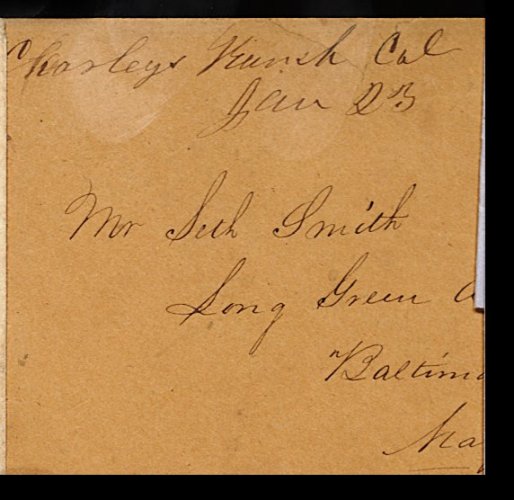 Charleys Ranch Cal
Jan 23
Mr Seth Smith
Long Green
Baltimo
Ma